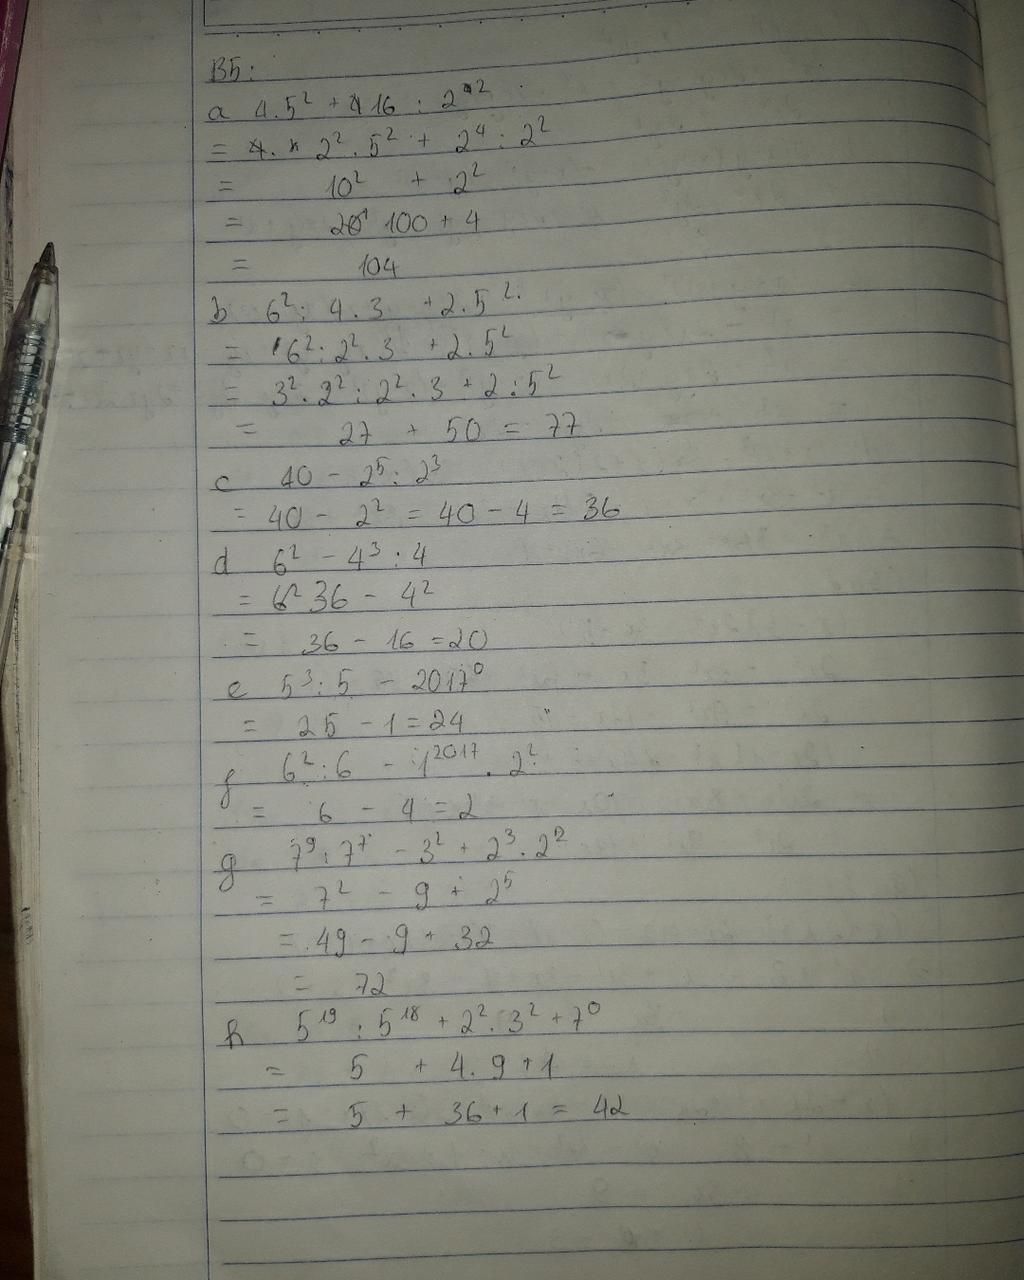 B5:
a 4.5² + 16 : 2²
= 2² . 5² + 2⁴ : 2²
= 10² + 2²
= 100 + 4
= 104
b 6² : 4 . 3 + 2.5²
= 6² : 2² . 3 + 2.5²
= 3² . 2² : 2² . 3 + 2 : 5²
= 27 + 50 = 77
c 40 - 2⁵ : 2³
= 40 - 2² = 40 - 4 = 36
d 6² - 4³ : 4
= 36 - 4²
= 36 - 16 = 20
e 5³ : 5 - 2017⁰
= 25 - 1 = 24
f 6² : 6 - 1²⁰¹⁷ . 2²
= 6 - 4 = 2
g 7⁹ : 7⁷ - 3² + 2³ . 2²
= 7² - 9 + 2⁵
= 49 - 9 + 32
= 72
h 5¹⁹ : 5¹⁸ + 2² . 3² + 7⁰
= 5 + 4 . 9 + 1
= 5 + 36 + 1 = 42